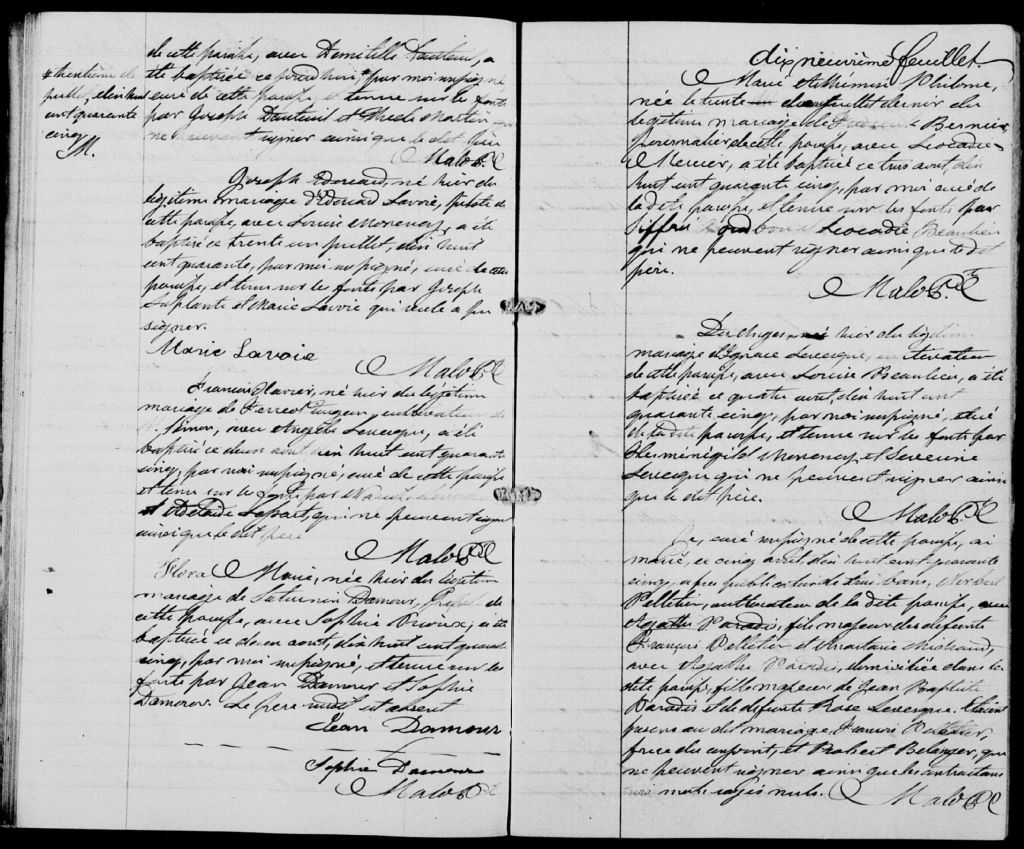 de cette paroisse, avec Domitille Dauteuil, a
été baptisée ce jourd'hui # par moi soussigné
curé de cette paroisse et tenue sur les fonts
par Joseph Dauteuil et Martin qui
ne peuvent signer ainsi que le dit père
Malo Ptre
# trentième de
juillet, dix huit
cent quarante
cinq
M.
Joseph Edouard, né hier du
légitime mariage d'Edouard Lavoie, pilote de
cette paroisse, avec Louise Morency, a été
baptisé ce trente un juillet, dix huit
cent quarante, par moi soussigné, curé de cette
paroisse, et tenu sur les fonts par Joseph
Laplante et Marie Lavoie qui seule a su
signer.
Marie Lavoie
Malo Ptre
François Xavier, né hier du légitime
mariage de Pierre Turgeon, cultivateur de
St. Simon, avec Angèle Levecque, a été
baptisé ce deux aout dix huit cent quarante
cinq, par moi soussigné, curé de cette paroisse
et tenu sur les fonts par
et Adelaide qui ne peuvent signer
ainsi que le dit père
Malo Ptre
Flora Marie, née hier du légitime
mariage de Saturnin Damour, de
cette paroisse, avec Sophie Drouin, a été
baptisée ce deux aout, dix huit cent quarante
cinq, par moi soussigné, et tenue sur les
fonts par Jean Damour et Sophie
Damour. Le père est absent
Jean Damour
Sophie Damour
Malo Ptre
dix neuvième feuillet
Marie Arthémise Philomène,
née le trente de juillet dernier du
légitime mariage de Bernier,
journalier de cette paroisse, avec Leocadie
Mercier, a été baptisée ce trois aout, dix
huit cent quarante cinq, par moi curé de
la dite paroisse, et tenue sur les fonts par
Leocadie Beaulieu
qui ne peuvent signer ainsi que le dit
père.
Malo Ptre
né hier du légitime
mariage d'Ignace Levecque, cultivateur
de cette paroisse, avec Louise Beaulieu, a été
baptisée ce quatre aout, dix huit cent
quarante cinq, par moi soussigné, curé
de la dite paroisse, et tenue sur les fonts par
Herménégild Morency et Severine
Levecque qui ne peuvent signer ainsi
que le dit père.
Malo Ptre
Je, curé soussigné de cette paroisse, ai
marié, ce cinq aout dix huit cent quarante
cinq, après publication de leurs bans, Norbert
Pelletier, cultivateur de la dite paroisse, avec
Agathe Paradis, fils majeur des défunts
François Pelletier et Michaud,
avec Agathe Paradis, domiciliée dans la
dite paroisse, fille majeure de Jean Baptiste
Paradis et de défunte Rose Levecque. Etaient
présens au dit mariage François Pelletier,
frère du conjoint, et Robert Belanger, qui
ne peuvent signer ainsi que les contractans
mots rayés nuls. Malo Ptre